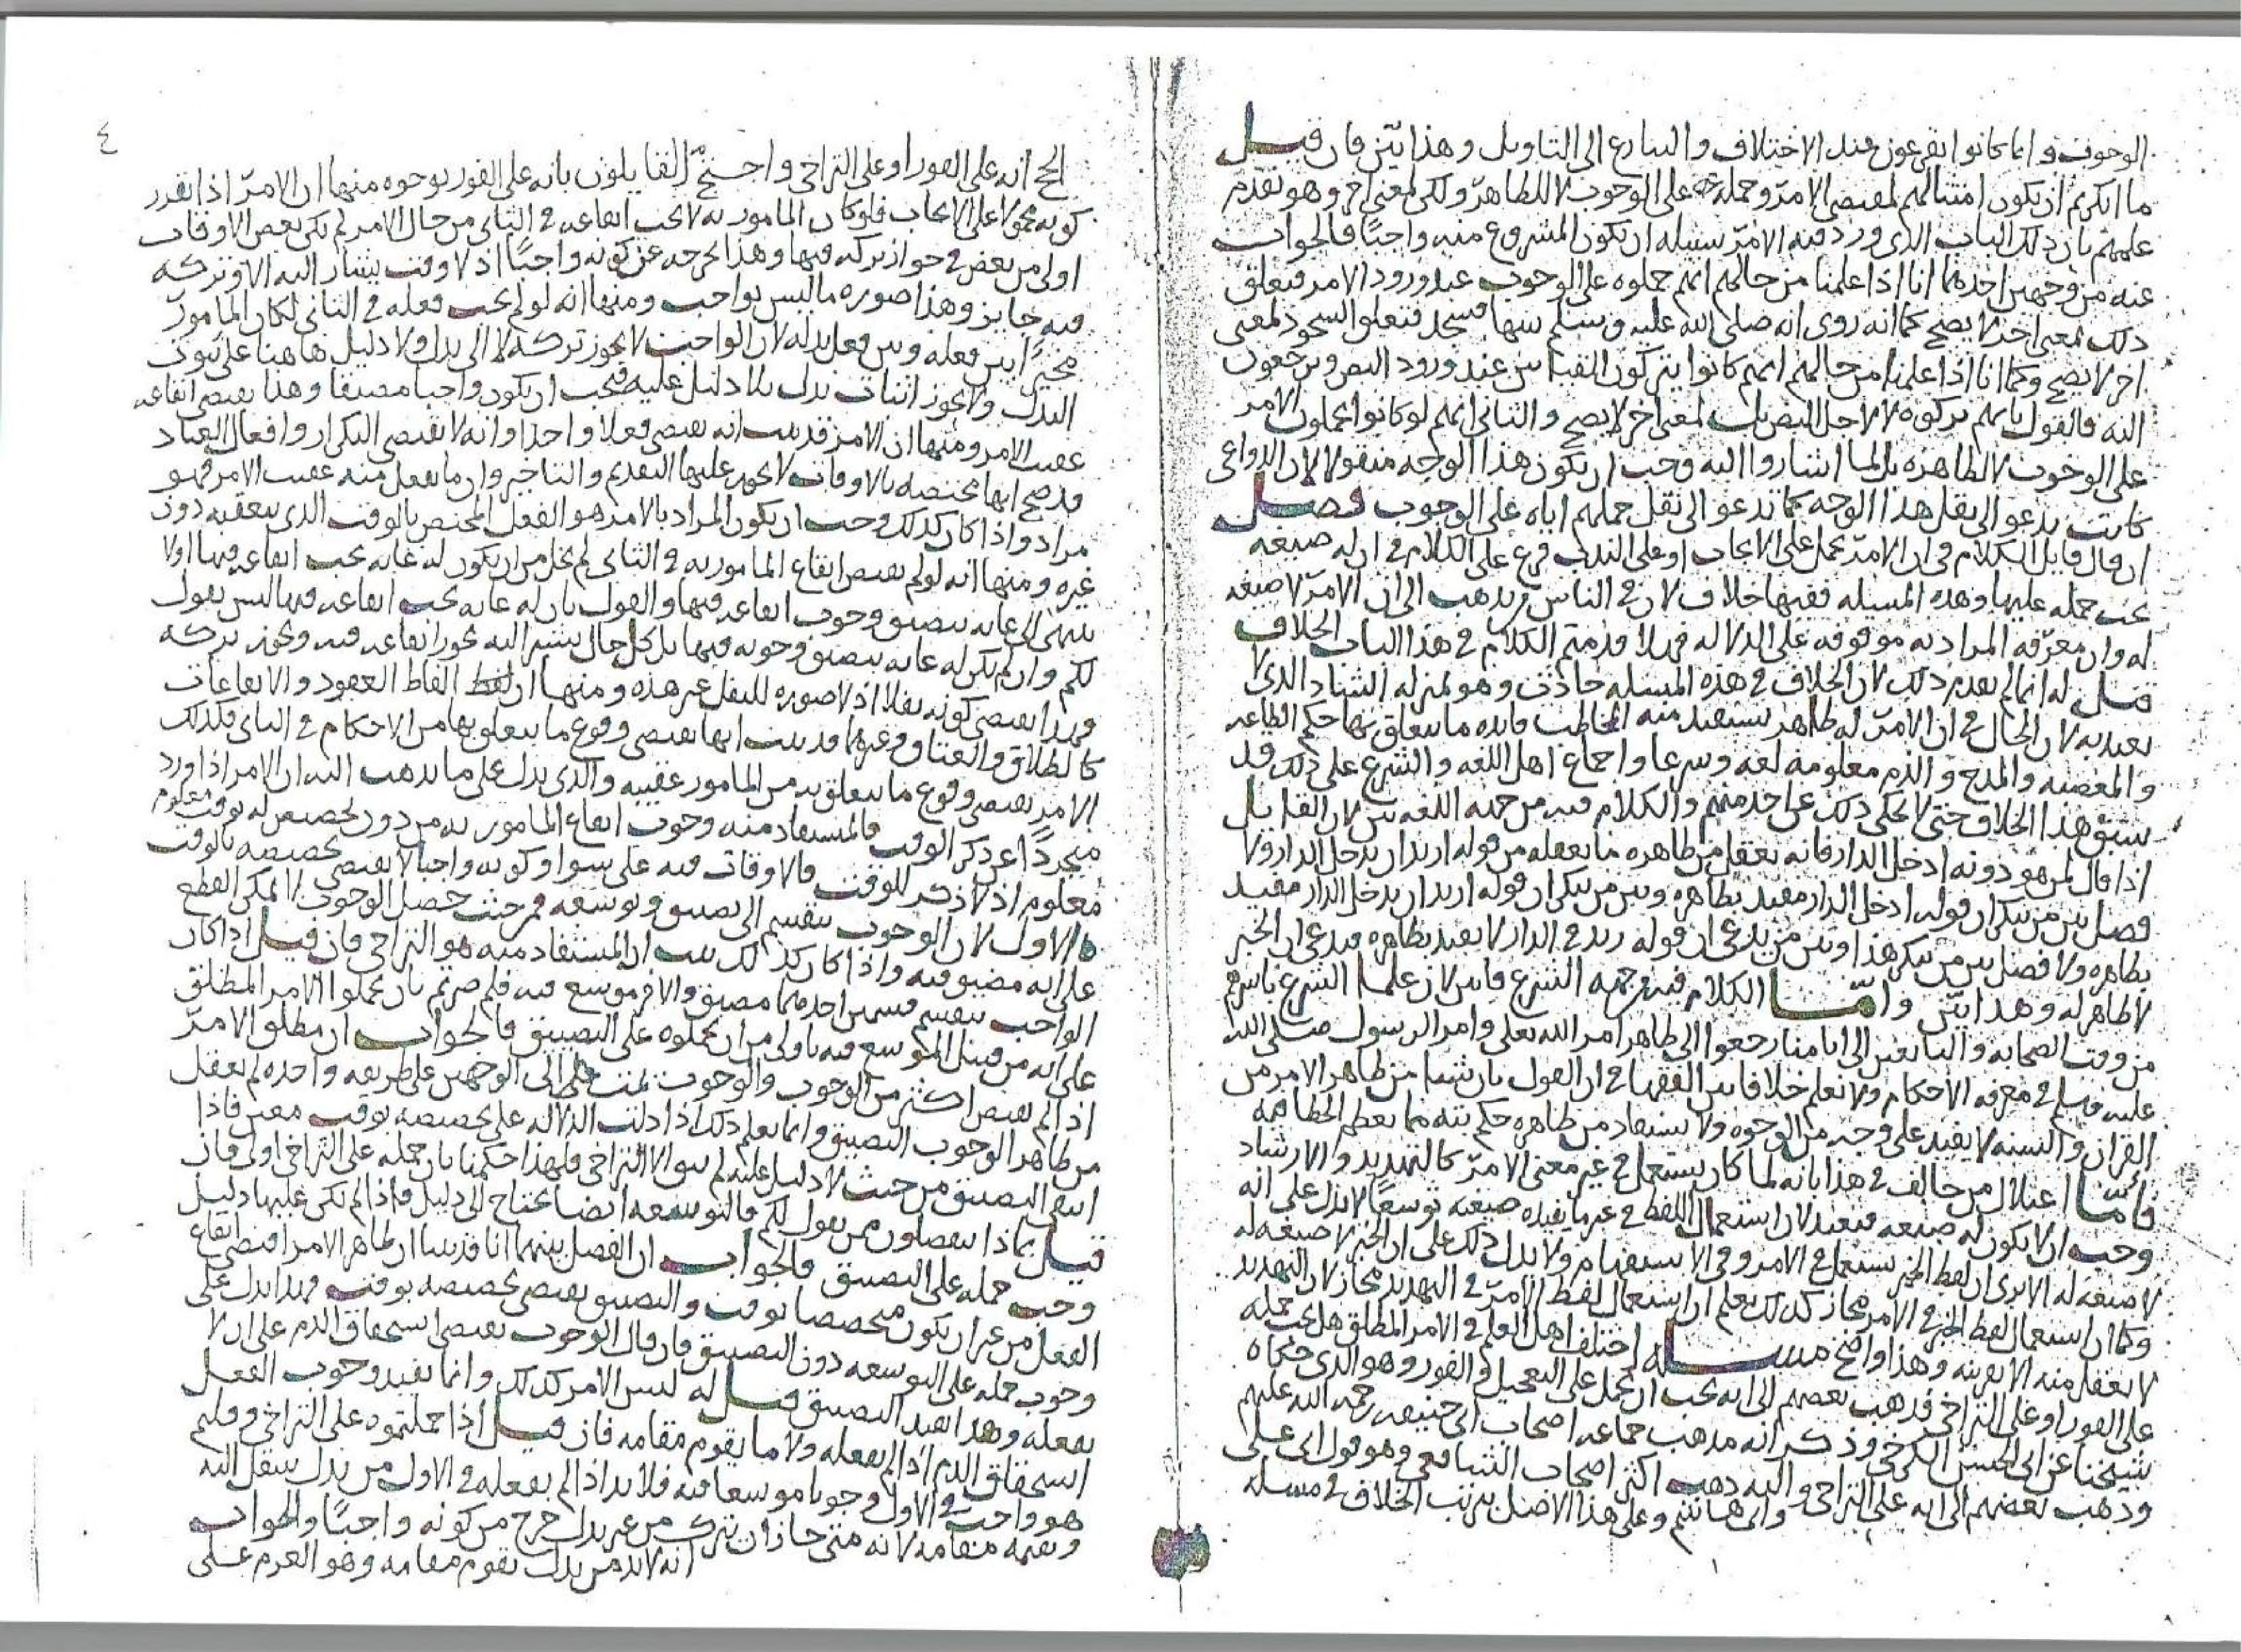 الوجوب وانما كانوا يفزعون عند الاختلاف والتنازع الى التاويل وهذا بيّن فان قيل
ما انكرتم ان يكون امتثالهم لمقتضى الامر وحملهم على الوجوب لا للظاهر ولكن لمعنى اخر وهو تقدم
علمهم بان ذلك الباب الذى ورد فيه الامر سبيله ان يكون المشروع منه واجبًا فالجواب
عنه من وجهين احدهما انا اذا علمنا من حالهم انهم حملوه على الوجوب عند ورود الامر فتعلق
ذلك بمعنى اخر لا يصح كما انه روى انه صلى الله عليه وسلم سها فسجد فتعلق السجود لمعنى
اخر لا يصح وكما انا اذا علمنا من حالهم انهم كانوا يتركون القياس عند ورود النص ويرجعون
اليه فالقول بانهم تركوه لا لاجل النص بل لمعنى اخر لا يصح والثانى انهم لو كانوا يحملون الامر
على الوجوب لا لظاهره بل لما اشاروا اليه وجب ان يكون هذا الوجه منقولا لان الدواعى
كانت تدعو الى نقل هذا الوجه كما تدعو الى نقل حملهم اياه على الوجوب فصل
ان قال قايل الكلام فى ان الامر يحمل على الايجاب او على الندب فرع على الكلام فى ان له صيغه
يجب حمله عليها وهذه المسئله ففيها خلاف لان فى الناس من يذهب الى ان الامر لا صيغه
له وان معرفه المراد به موقوفه على الدلاله فهلا قدمتم الكلام فى هذا الباب الخلاف
قيل له انما لم نقدم ذلك لان الخلاف فى هذه المسئله حادث وهو بمنزله الشاذ الذى لا
يعتد به لان الحال فى ان الامر له ظاهر يستفيد منه المخاطب فايده ما يتعلق بها حكم الطاعه
والمعصيه والمدح والذم معلومه لغه وشرعا واجماع اهل اللغه والشرع على ذلك قد
سبق هذا الخلاف حتى لا يحكى ذلك عن احد منهم والكلام فيه من جهه اللغه بيّن لان القايل
اذا قال لمن هو دونه ادخل الدار فانه يعقل من ظاهره ما يعقله من قوله اريد ان تدخل الدار ولا
فصل بين من ينكر ان قوله ادخل الدار مفيد بظاهره وبين من ينكر ان قوله اريد ان تدخل الدار مفيد
بظاهره ولا فصل بين من ينكر هذا وبين من يدعى ان قوله زيد فى الدار لا يفيد بظاهره فيدعى ان الخبر
لا ظاهر له وهذا بيّن وامّا الكلام فيه من جهه الشرع فبيّن لان علما الشرع باسرهم
من وقت الصحابه والتابعين الى ايامنا رجعوا الى ظاهر امر الله تعالى وامر الرسول صلى الله
عليه وسلم فى معرفه الاحكام ولا نعلم خلافا بين الفقها فى ان القول بان شيا من ظاهر الامر من
القران والسنه لا يفيد على وجه من الوجوه ولا يستفاد من ظاهره حكم بته مما يعظم الخطا فيه
فأمّا اعتلال من خالف فى هذا بانه لما كان يستعمل فى غير معنى الامر كالتهديد والارشاد
وجب ان لا يكون له صيغه فبعيد لان استعمال اللفظ فى غير ما تفيده صيغته توسعًا لا يدل على انه
لا صيغه له الا ترى ان لفظ الخبر يستعمل فى الامر وفى الاستفهام ولا يدل ذلك على ان الخبر لا صيغه له
وكما ان استعمال لفظ الخبر فى الامر مجاز كذلك نعلم ان استعمال لفظ الامر فى التهديد مجاز لان التهديد
لا يعقل منه الا بقرينه وهذا واضح مسئله اختلف اهل العلم فى الامر المطلق هل يجب حمله
على الفور او على التراخى فذهب بعضهم الى انه يجب ان يحمل على التعجيل والفور وهو الذى حكاه
شيخنا عن ابى الحسن الكرخى وذكر انه مذهب جماعه اصحاب ابى حنيفه رحمه الله عليهم
وذهب بعضهم الى انه على التراخى واليه ذهب اكثر اصحاب الشافعى وهو قول ابى على
وابى هاشم وعلى هذا الاصل ترتب الخلاف فى مسئله
٤
الحج انه على الفور او على التراخى واحتج القايلون بانه على الفور بوجوه منها ان الامر اذا تقرر
كونه محمولا على الايجاب فلو كان المامور به لا يجب ايقاعه فى الثانى من حال الامر لم يكن بعض الاوقات
اولى من بعض فى جواز تركه فيها وهذا يخرجه عن كونه واجبًا اذ لا وقت يشار اليه الا وتركه
فيه جايز وهذا صوره ما ليس بواجب ومنها انه لو لم يجب فعله فى الثانى لكان المامور
مخيرًا بين فعله وبين فعل بدله لان الواجب لا يجوز تركه لا الى بدل ولا دليل هاهنا على ثبوت
البدل ولا يجوز اثبات بدل بلا دليل عليه فيجب ان يكون واجبا مضيقا وهذا يقتضى ايقاعه
عقيب الامر ومنها ان الامر قد ثبت انه يقتضى فعلا واحدا وانه لا يقتضى التكرار وافعال العباد
قد صح انها مختصه بالاوقات لا يجوز عليها التقديم والتاخير وان ما يفعل منه عقيب الامر فهو
مراد واذا كان كذلك وجب ان يكون المراد بالامر هو الفعل المختص بالوقت الذى يتعقبه دون
غيره ومنها انه لو لم يقتض ايقاع المامور به فى الثانى لم يخل من ان يكون له غايه يجب ايقاعه فيها او لا
ينتهى الى غايه يتضيق وجوب ايقاعه فيها والقول بان له غايه يجب ايقاعه فيها ليس بقول
لكم وان لم يكن له غايه يتضيق وجوبه فيها بل كل حال يشير اليه يجوز ايقاعه فيه ويجوز تركه
فهذا يقتضى كونه نفلا اذ لا صوره للنفل غير هذه ومنها ان الفاظ العقود والايقاعات
كالطلاق والعتاق وغيرهما قد ثبت انها تقتضى وقوع ما يتعلق بها من الاحكام فى الثانى فكذلك
الامر يقتضى وقوع ما يتعلق به من المامور عقيبه والذى يدل على ما نذهب اليه ان الامر اذا ورد
متجردًا عن ذكر الوقت فالمستفاد منه وجوب ايقاع المامور به من دون تخصيص له بوقت معلوم
معلوم اذ لا ذكر للوقت فالاوقات فيه على سوا وكونه واجبا لا يقتضى تخصيصه بالوقت
الاول لان الوجوب ينقسم الى تضييق وتوسعه فمن حيث حصل الوجوب لا يمكن القطع
على انه مضيق فيه واذا كان كذلك ثبت ان المستفاد منه هو التراخى فان قيل اذا كان
الواجب ينقسم قسمين احدهما مضيق والاخر موسع فيه فلم صرتم بان تحملوا الامر المطلق
على انه من قبيل الموسع فيه باولى من ان تحملوه على التضييق فالجواب ان مطلق الامر
اذا لم يقتض اكثر من الوجوب والوجوب يثبت على الوجهين على طريقه واحده لم يعقل
من ظاهر الوجوب التضييق وانما يعلم ذلك اذا دلت الدلاله على تخصيصه بوقت معين فاذا
انتفى التضييق من حيث لا دليل عليه لم يبق الا التراخى فلهذا حكمنا بان حمله على التراخى اولى فان
قيل بماذا تنفصلون ممن يقول لكم فالتوسعه ايضا تحتاج الى دليل فاذا لم يكن عليها دليل
وجب حمله على التضييق فالجواب ان الفصل بينهما انا قد بينا ان ظاهر الامر اقتضى ايقاع
الفعل من غير ان يكون متخصصا بوقت والتضييق يقتضى تخصيصه بوقت فهذا يدل على
وجوب حمله على التوسعه دون التضييق فان قال الوجوب يقتضى استحقاق الذم على ان لا
يفعله وهذا يفيد التضييق قيل له ليس الامر كذلك وانما يفيد وجوب الفعل
استحقاق الذم اذا لم يفعله ولا ما يقوم مقامه فان قيل اذا حملتموه على التراخى وقلتم
هو واجب فى الاول وجوبا موسعا فيه فلا بد اذا لم يفعله فى الاول من بدل ينتقل اليه
ويقيمه مقامه لانه متى جاز ان يترك من غير بدل خرج من كونه واجبًا والجواب
انه لا بد من بدل يقوم مقامه وهو العزم على